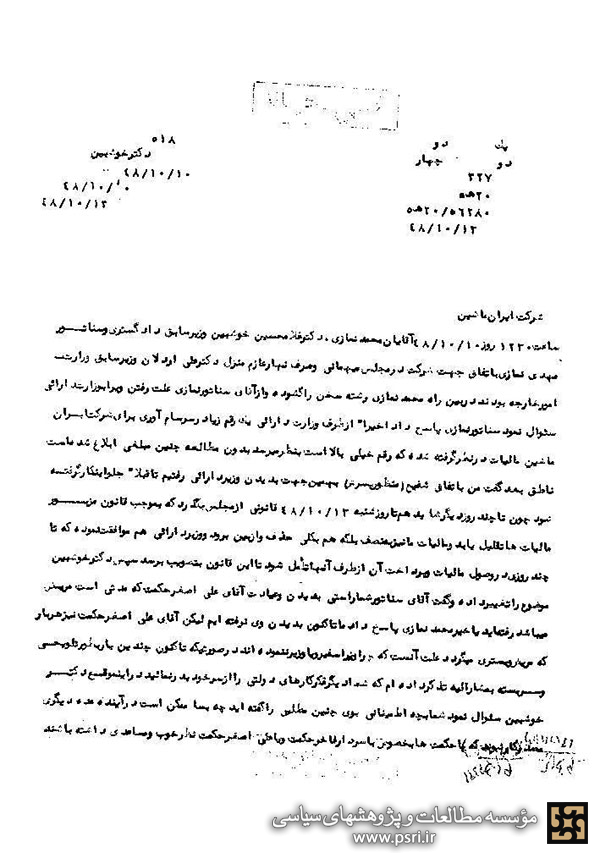 یک دو
دو چهار
۳۲۷
۲۰هـ۵
۲۰/۵٦۲۸۰هـ۵
٤٨/۱۰/۱۳
۵۱۸
دکترخوشبین
٤٨/۱۰/۱۰
٤٨/۱۰/۱۰
٤٨/۱۰/۱۳
شرکت ایران ماشین
ساعت ۱۲۳۰ روز ٤٨/۱۰/۱۰ آقایان محمد نمازی، دکترغلامحسین خوشبین وزیرسابق دادگستری وسناتور
مهدی نمازی باتفاق جهت شرکت در مجلس میهمانی وصرف نهارعازم منزل دکترعلی اردلان وزیرسابق وزارت
امورخارجه بودند دربین راه محمد نمازی رشته سخن راگشوده وازآقای سناتورنمازی علت رفتن ویرابوزارت ارائی
سئوال نمود سناتورنمازی پاسخ داد اخیرا" ازطرف وزارت دارائی یک رقم زیاد رسرسام آوری برای شرکت ایران
ماشین مالیات درنظرگرفته شده که رقم خیلی بالا است بنظرمیرسد بدون مطالعه چنین مبلغی ابلاغ شده است
ناطق بعد گفت من باتفاق شفیع (منظورپسرش) بهمین جهت بدیدن وزیردارائی رفتیم تاقبلا" جلواینکارگرفته
نمود چون تاچند روزدیگرشاید هم تاروزشنبه ٤٨/۱۰/۱۳ قانونی ازمجلس بگذرد که بموجب قانون مزبور
مالیات هاتقلیل یابد ومالیات مانیزبنصف بلکه هم بکلی حذف وازبین برود ووزیردارائی هم موافقت نموده که تا
چند روزی دروصول مالیات وپرداخت آن ازطرف آنهاتأمل شود تااین قانون بتصویب برسد سپس دکترخوشبین
موضوع راتغییرداده وگفت آقای سناتورشماراستی بدیدن وعیادت آقای علی اصغرحکمت که مدتی است مریض
میباشد رفته اید یاخیرمحمد نمازی پاسخ داد ماتاکنون بدیدن وی نرفته ایم لیکن آقای علی اصغرحکمت نیزهربار
که مریض وبستری میگردد علت آنست که چراویراسفیرویاوزیرننموده اند درصورتیکه تاکنون چندین باربطورتلویحی
وسربسته بمشارالیه تذکرداده ام که شما دیگرفکرکارهای دولتی راازسرخود بدرنمائید دراینموقع دکتر
خوشبین سئوال نمود شمابچه اطمینانی بوی چنین مطلبی راگفته اید چه بسا ممکن است درآینده عده دیگری
که باحکمت هابخصوص باسردارفاخرحکمت وباعلی اصغرحکمت نظرخوب ومساعدی داشته باشند
مؤسسه مطالعات و پژوهشهای سیاسی
www.psri.ir